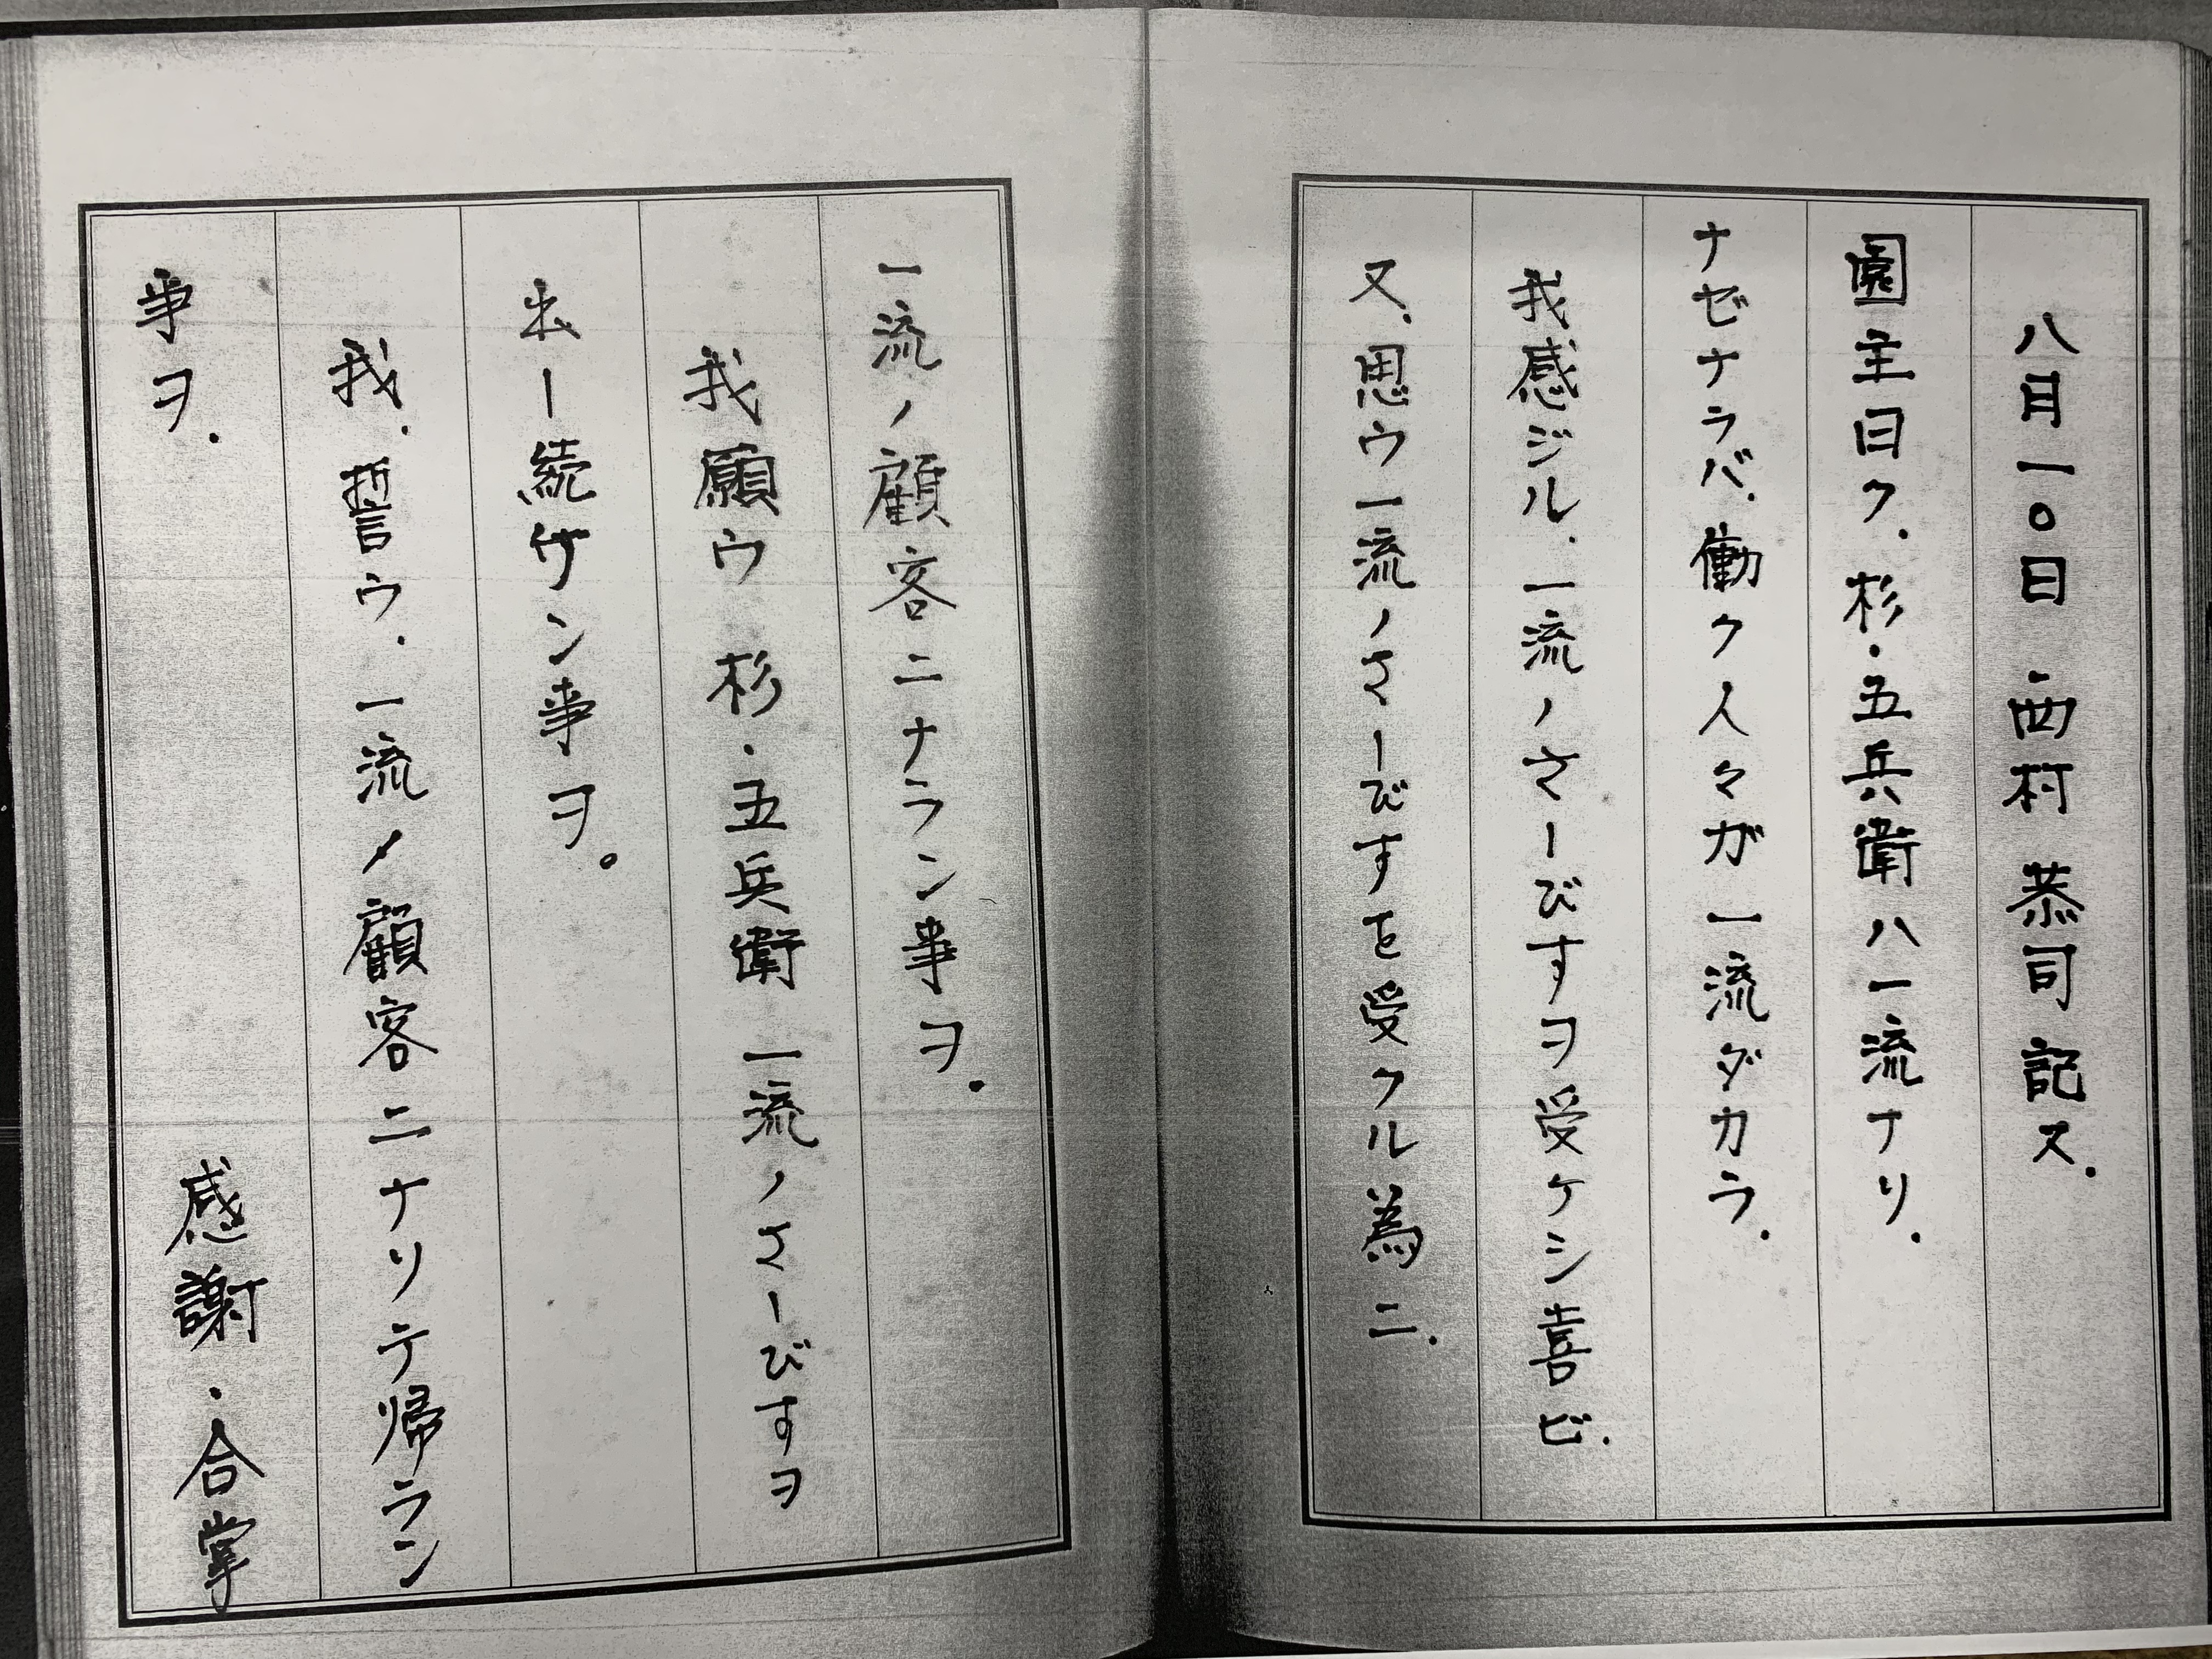 八月一〇日 西村 恭司 記ス.
園主曰ク.杉・五兵衛ハ一流ナリ.
ナゼナラバ、働ク人々ガ一流ダカラ.
我感ジル.一流ノさーびすヲ受ケシ喜ビ.
又、思ウ一流ノさーびすを受クル為ニ.
一流ノ顧客ニナラン事ヲ.
我願ウ 杉・五兵衛 一流ノさーびすヲ
出シ続ケン事ヲ。
我.誓ウ.一流ノ顧客ニナリテ帰ラン
事ヲ. 感謝・合掌